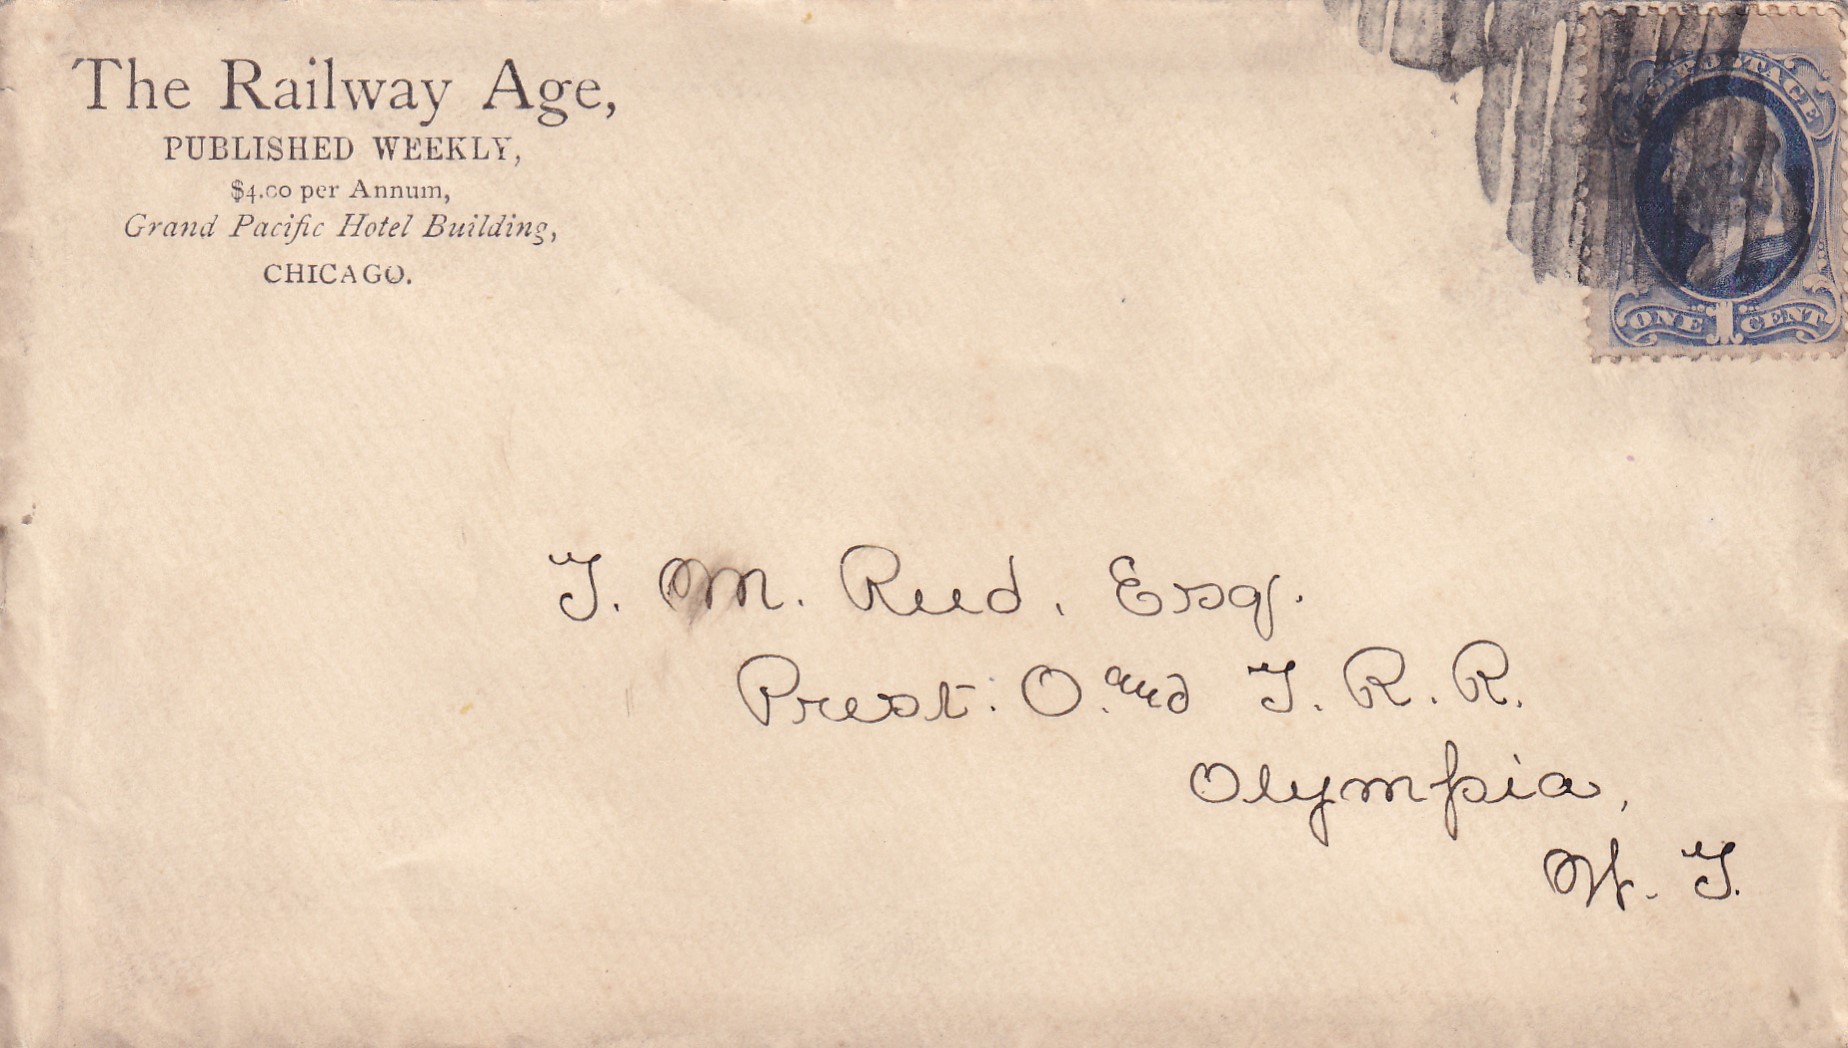 The Railway Age,
PUBLISHED WEEKLY,
$4.00 per Annum,
Grand Pacific Hotel Building,
CHICAGO.
U.S. POSTAGE
ONE 1 CENT
T. M. Reed, Esq.
Prest. O. and T. R. R.
Olympia,
W. T.